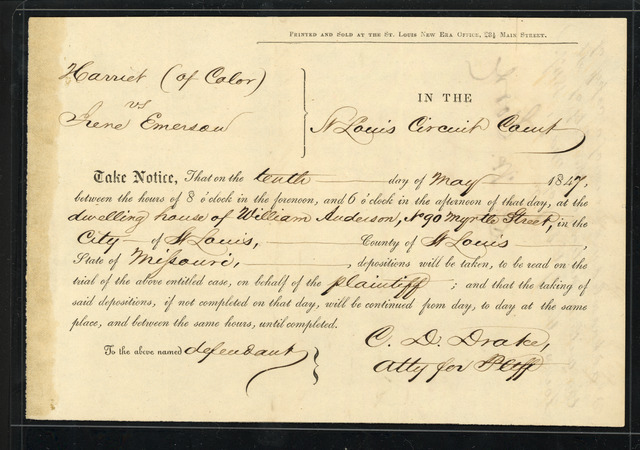 PRINTED AND SOLD AT THE ST. LOUIS NEW ERA OFFICE, 28½ MAIN STREET.
Harriet (of Color)
vs
Irene Emerson
IN THE
St Louis Circuit Court
Take Notice, That on the tenth day of May 1847,
between the hours of 8 o'clock in the forenoon, and 6 o'clock in the afternoon of that day, at the
dwelling house of William Anderson, No 90 Myrtle Street, in the
City of St Louis, County of St Louis,
State of Missouri, depositions will be taken, to be read on the
trial of the above entitled case, on behalf of the plaintiff; and that the taking of
said depositions, if not completed on that day, will be continued from day, to day at the same
place, and between the same hours, until completed.
To the above named defendant
C. D. Drake,
Atty for Plff